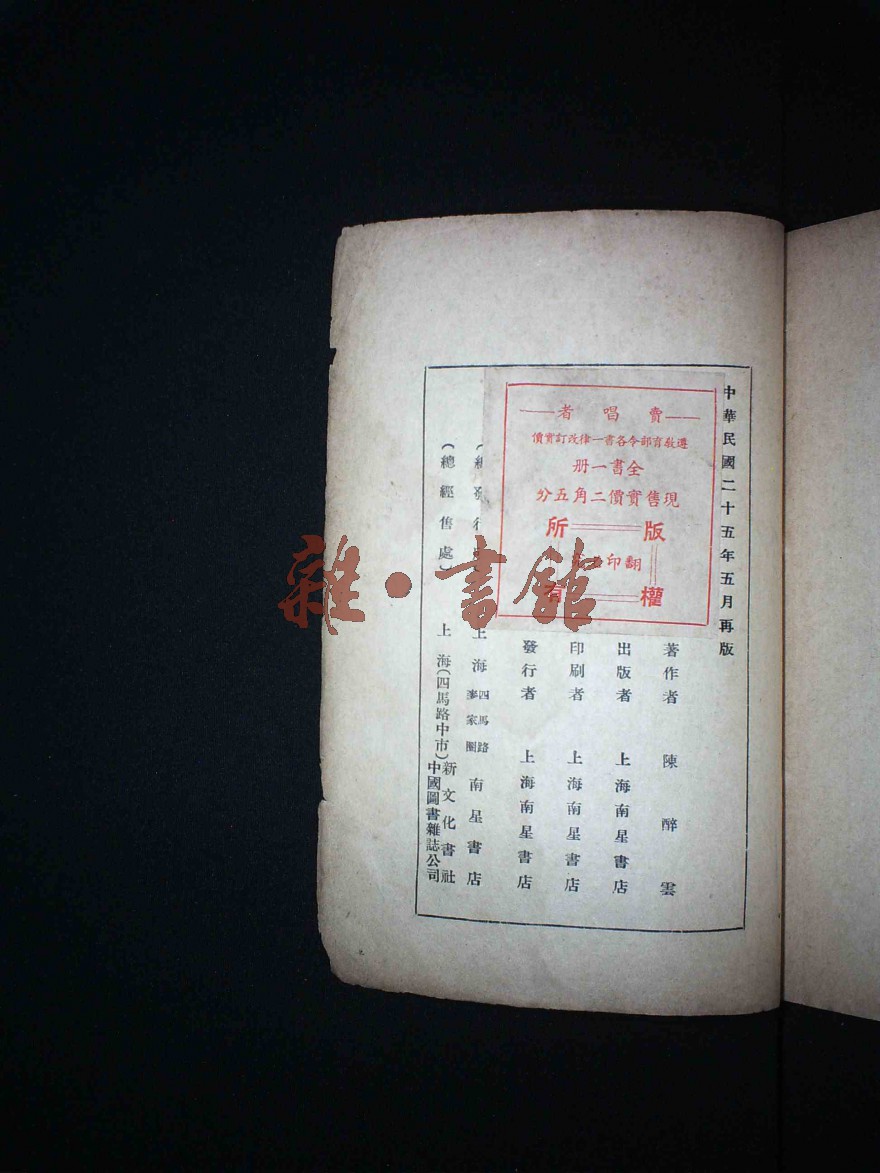 中華民國二十五年五月再版
賣唱者
遵敎育部令各書一律改訂實價
全書一册
現售實價二角五分
版權所有
翻印必究
著作者 陳醉雲
出版者 上海南星書店
印刷者 上海南星書店
發行者 上海南星書店
上海四馬路麥家圈 南星書店
(總經售處) 上海(四馬路中市)新文化書社
中國圖書雜誌公司
雜·書館